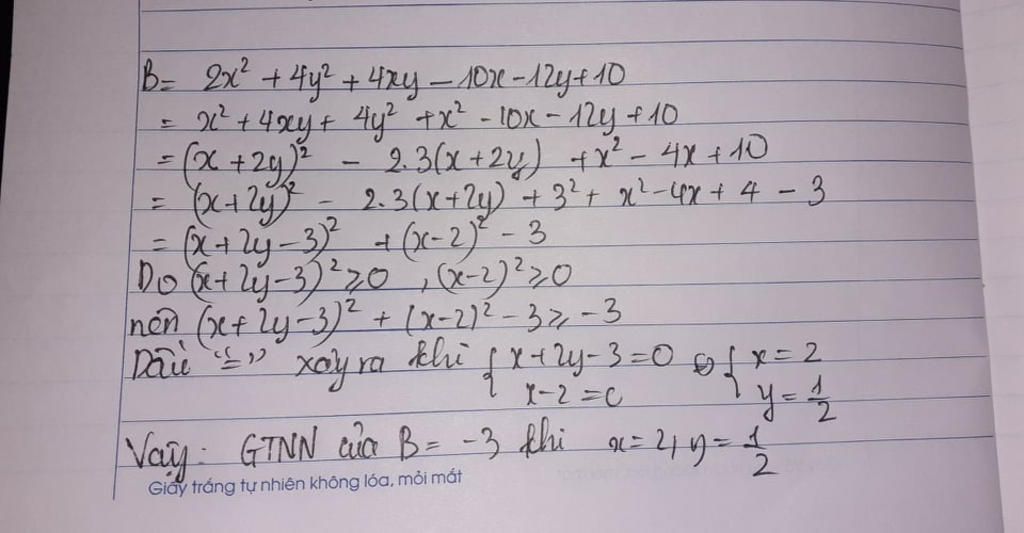 B= 2x² + 4y² + 4xy – 10x – 12y + 10
= x² + 4xy + 4y² + x² - 10x – 12y + 10
= (x + 2y)² – 2.3(x + 2y) + x² – 4x + 10
= (x + 2y)² – 2.3(x + 2y) + 3² + x² – 4x + 4 – 3
= (x + 2y – 3)² + (x – 2)² – 3
Do (x + 2y – 3)² ≥ 0 , (x – 2)² ≥ 0
nên (x + 2y – 3)² + (x – 2)² – 3 ≥ – 3
Dấu "=" xảy ra khi { x + 2y – 3 = 0 ⇔ { x = 2
x – 2 = 0 y = 1/2
Vậy: GTNN của B = -3 khi x = 2, y = 1/2
Giấy trắng tự nhiên không lóa, mỏi mắt